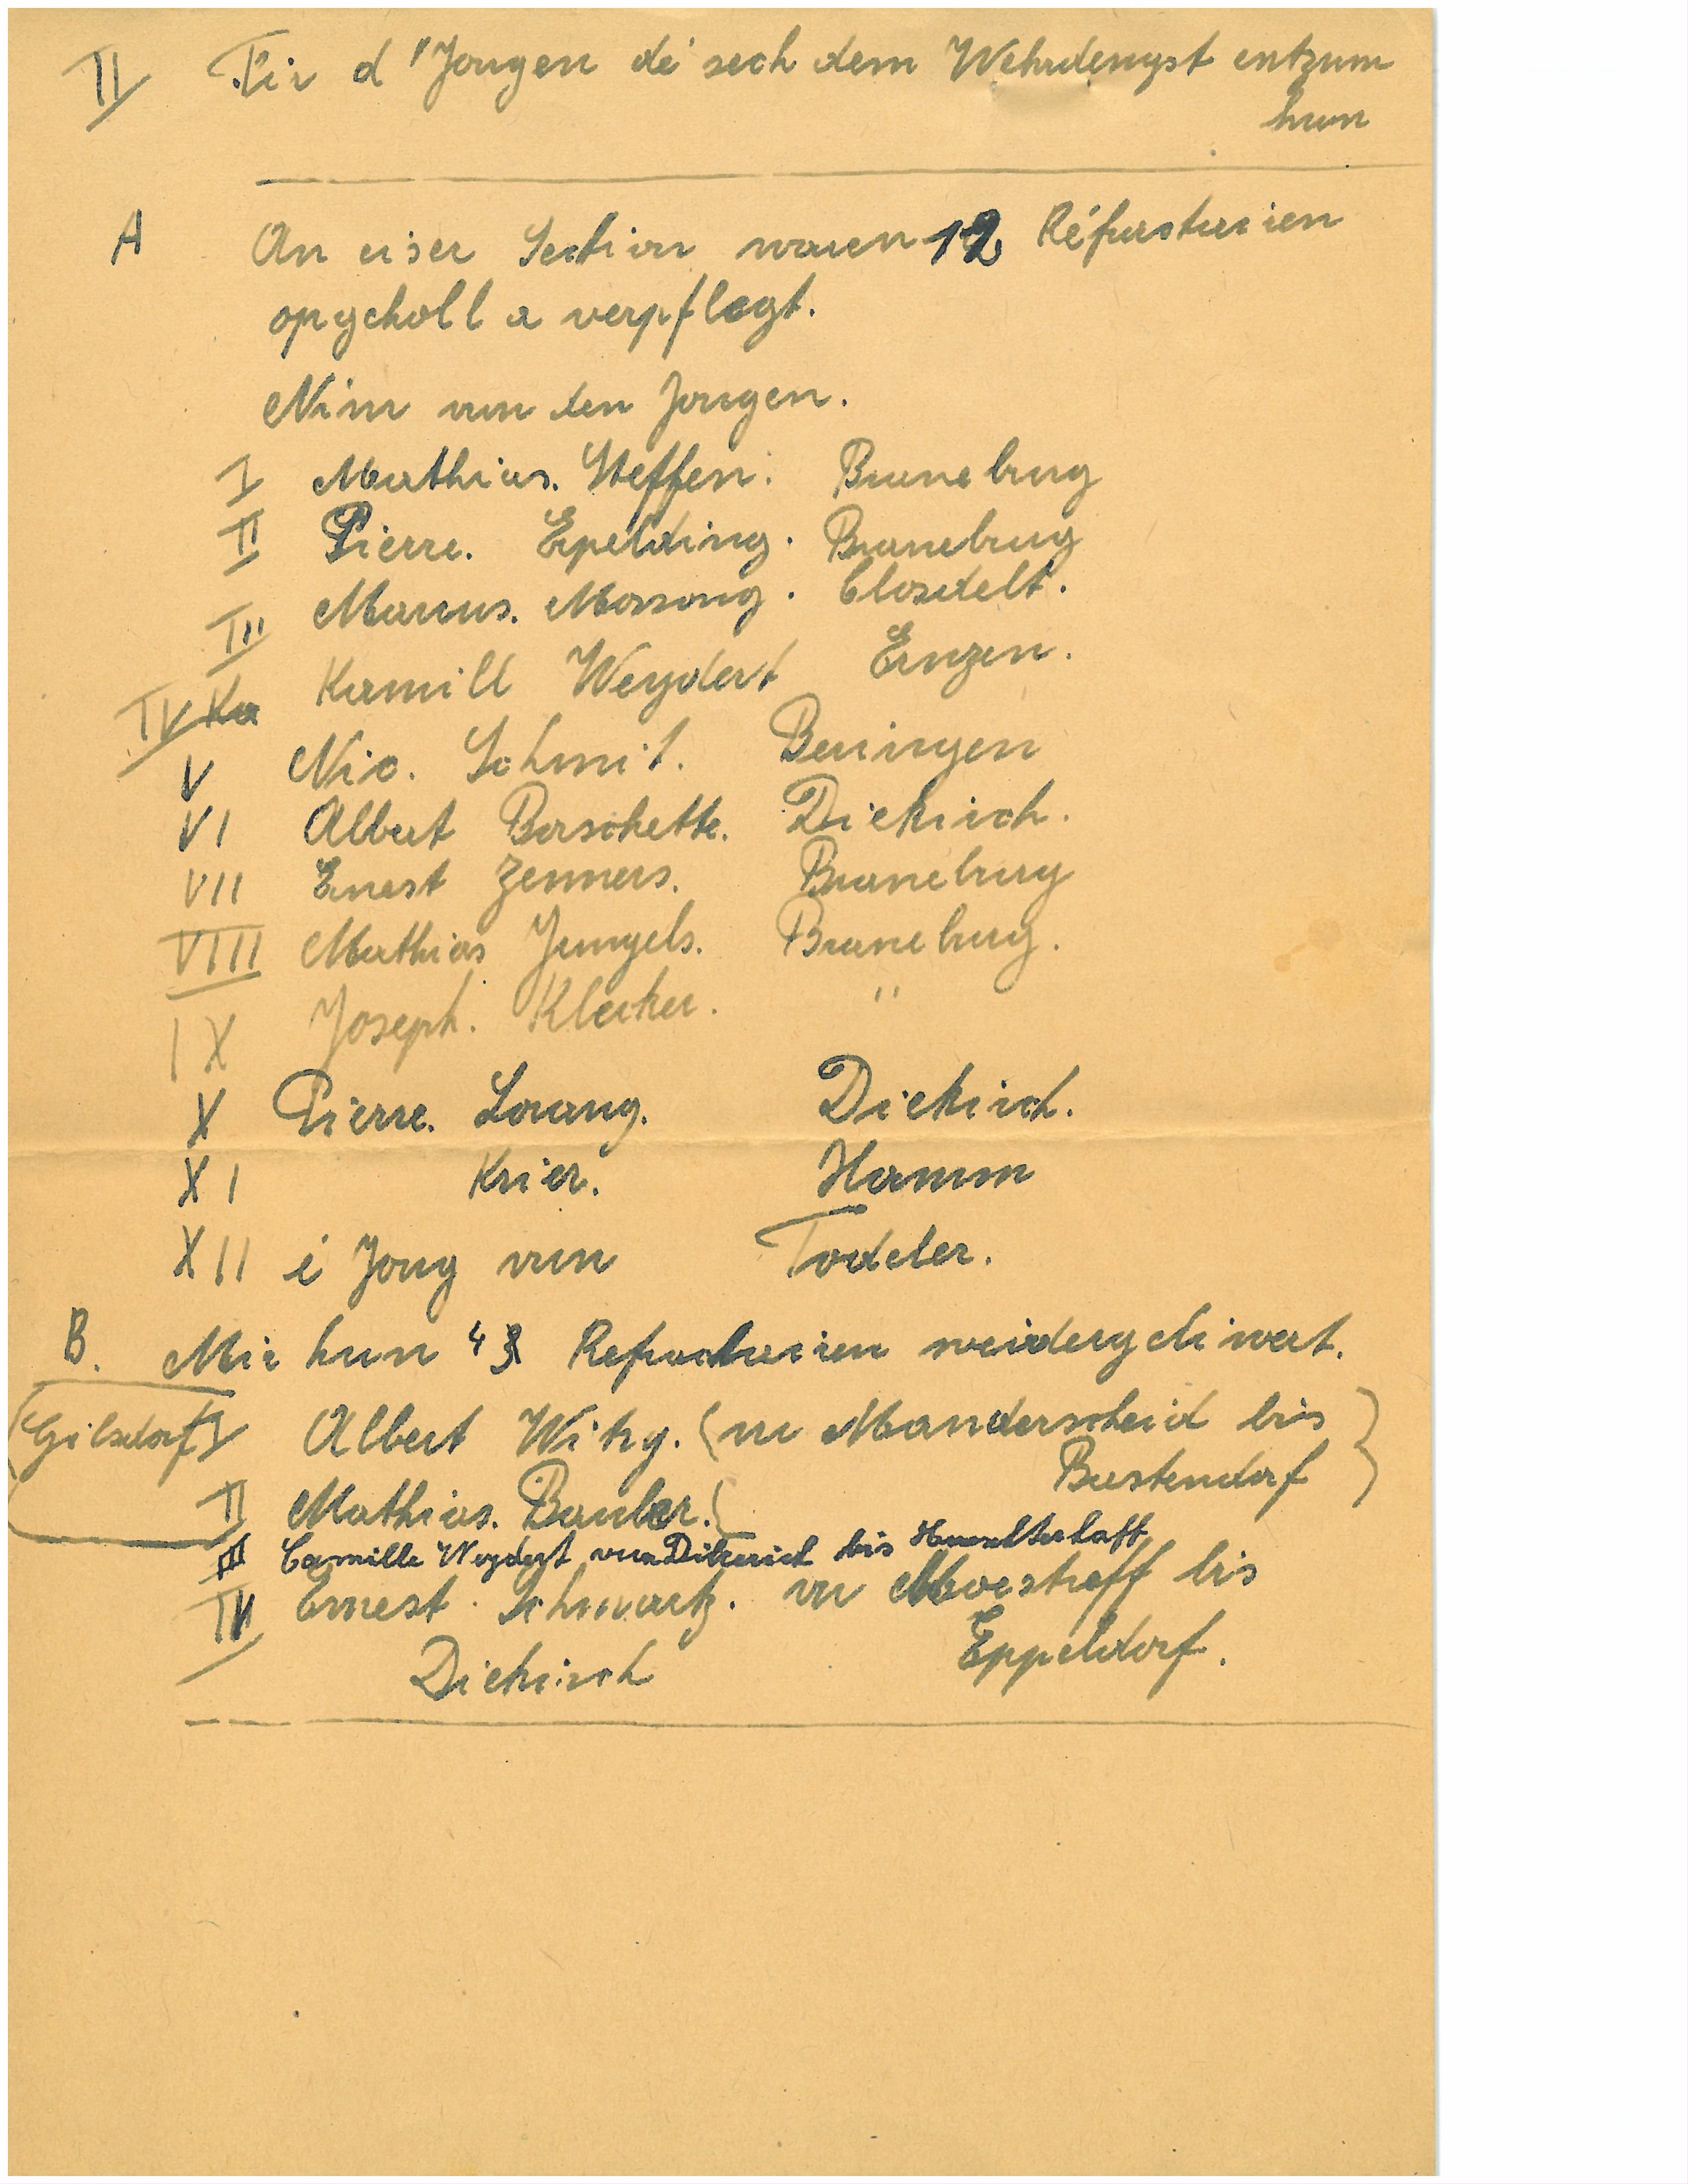 II Fir d'Jongen dé sech dem Wehrdengst entzun
hun
A An eiser Section waren 12 Réfractairien
opgeholl a verpflegt.
Nim vun den Jongen.
I Mathias. Steffen. Braneburg
II Pierre. Erpelding. Braneburg
III Marcus. Mossong. Closdelt.
IV Ka Kamill Weydert Ernzen.
V Nic. Schmit. Beringen
VI Albert Borschette. Diekirch.
VII Ernest Zenners. Braneburg
VIII Mathias Jungels. Braneburg.
IX Joseph. Klecker. "
X Pierre. Lorang. Diekirch.
XI Krier. Hamm
XII é Jong vun Todeler.
B. Mir hun 4 3 Refractairien weidergeliwert.
(Gilsdorf) I Albert Wity. (vu Manderscheid bis
Bastendorf
II Mathias. Bauler.
III Camille Weydert vun Dikrich bis
IV Ernest. Schwartz. vu Moestroff bis
Diekirch Eppeldorf.